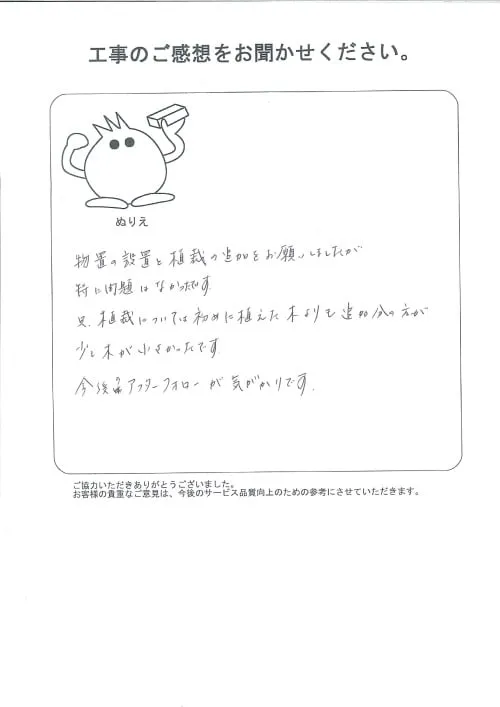 工事のご感想をお聞かせください。
ぬりえ
物置の設置と植栽の追加をお願いしましたが
特に問題はなかったです.
只、植栽については初めに植えた木よりも追加分の方が
少し木が小さかったです.
今後のアフターフォローが気がかりです.
ご協力いただきありがとうございました。
お客様の貴重なご意見は、今後のサービス品質向上のための参考にさせていただきます。